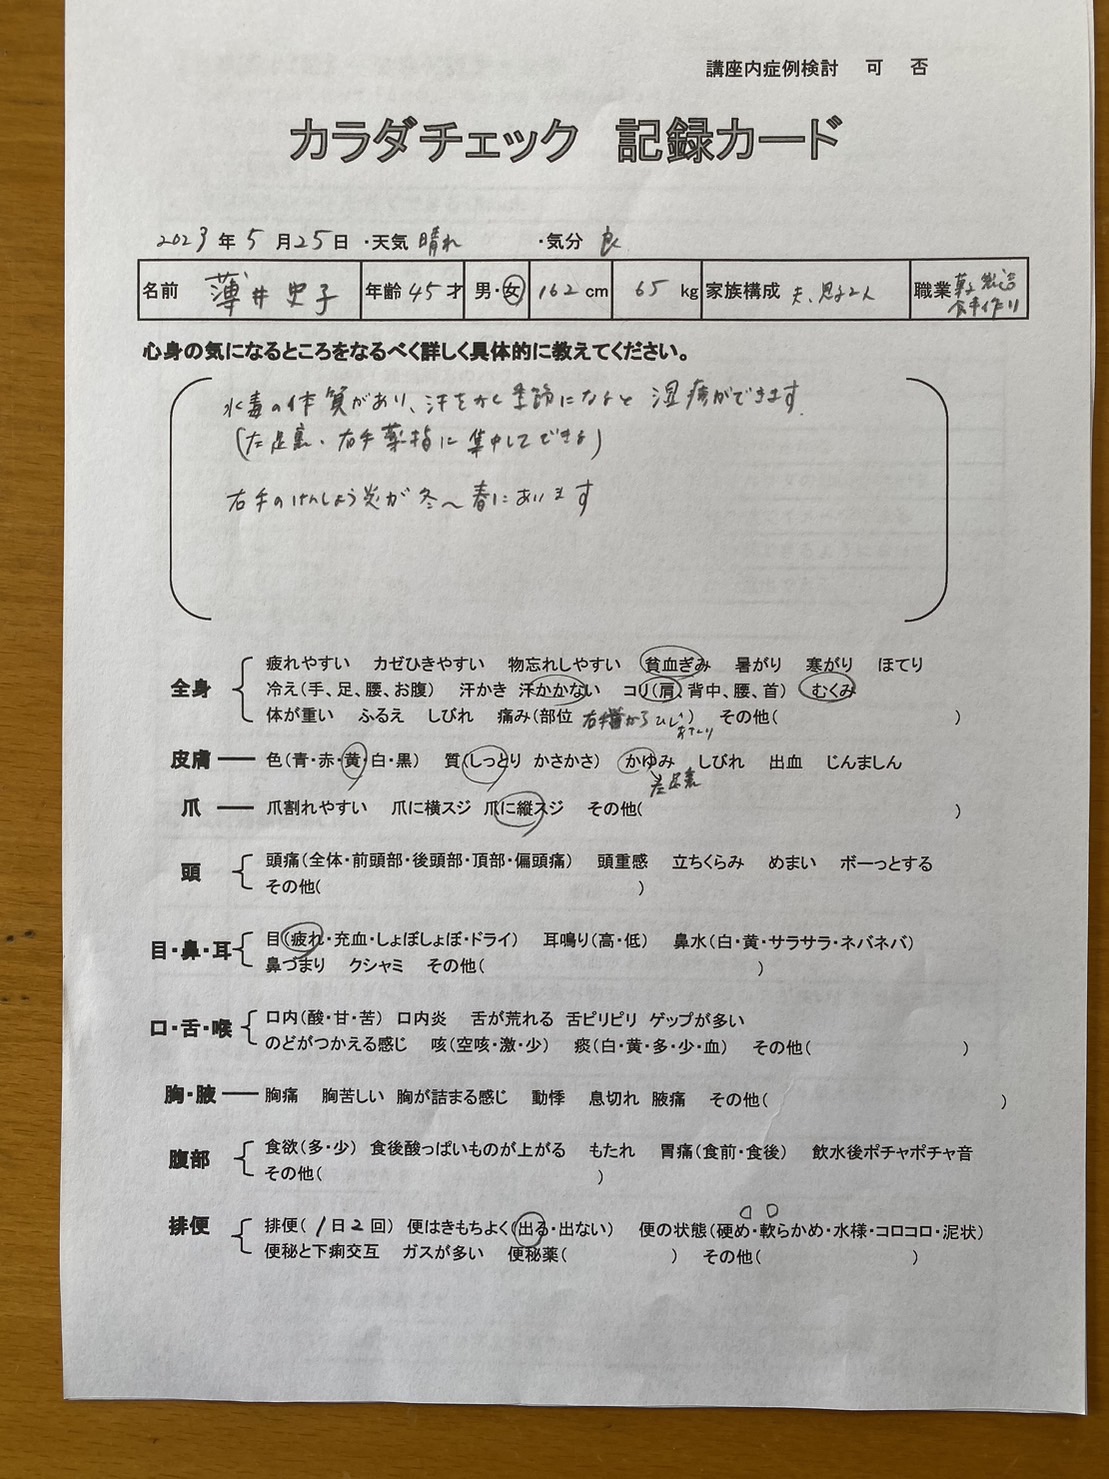 講座内症例検討 可 否
カラダチェック 記録カード
2023年 5月25日 ・天気 晴れ ・気分 良
名前 薄井史子 年齢 45才 男・女 162cm 65kg 家族構成 夫、息子2人 職業 製造
心身の気になるところをなるべく詳しく具体的に教えてください。
水毒の体質があり、汗をかく季節になると 湿疹ができます.
(左足裏・右手薬指に集中してできる)
右手のけんしょう炎が冬〜春にあります
全身 疲れやすい カゼひきやすい 物忘れしやすい 貧血ぎみ 暑がり 寒がり ほてり
冷え(手、足、腰、お腹) 汗かき 汗かかない コリ(肩、背中、腰、首) むくみ
体が重い ふるえ しびれ 痛み(部位 右手首からひじあたり) その他( )
皮膚 色(青・赤・黄・白・黒) 質(しっとり かさかさ) かゆみ しびれ 出血 じんましん
左足裏
爪 爪割れやすい 爪に横スジ 爪に縦スジ その他( )
頭 頭痛(全体・前頭部・後頭部・頂部・偏頭痛) 頭重感 立ちくらみ めまい ボーっとする
その他( )
目・鼻・耳 目(疲れ・充血・しょぼしょぼ・ドライ) 耳鳴り(高・低) 鼻水(白・黄・サラサラ・ネバネバ)
鼻づまり クシャミ その他( )
口・舌・喉 口内(酸・甘・苦) 口内炎 舌が荒れる 舌ピリピリ ゲップが多い
のどがつかえる感じ 咳(空咳・激・少) 痰(白・黄・多・少・血) その他( )
胸・腋 胸痛 胸苦しい 胸が詰まる感じ 動悸 息切れ 腋痛 その他( )
腹部 食欲(多・少) 食後酸っぱいものが上がる もたれ 胃痛(食前・食後) 飲水後ポチャポチャ音
その他( )
排便 排便( 1日2回) 便はきもちよく(出る・出ない) 便の状態(硬め・軟らかめ・水様・コロコロ・泥状)
便秘と下痢交互 ガスが多い 便秘薬( ) その他( )